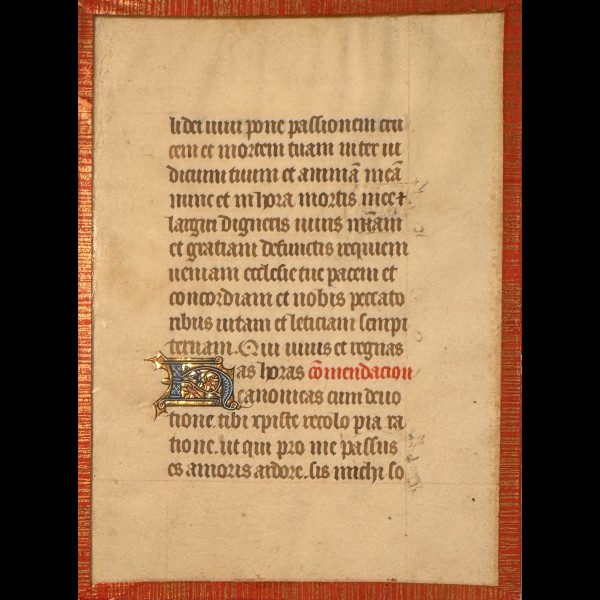 li dei uiui pone passionem cru
cem et mortem tuam inter iu
dicium tuum et animā meā
nunc et in hora mortis mee ⁊
largiri digneris uiuis m̄am
et gratiam defunctis requiem
ueniam ecclesie tue pacem et
concordiam et nobis peccato
ribus uitam et leticiam sempi
ternam. Qui uiuis et regnas
Has horas cōmendacion
canonicas cum deuo
tione. tibi xpiste recolo pia ra
tione. ut qui pro me passus
es amoris ardore. sis michi so